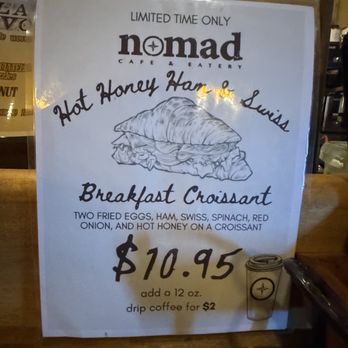 LIMITED TIME ONLY
nomad
CAFE & EATERY
Hot Honey Ham & Swiss
Breakfast Croissant
TWO FRIED EGGS, HAM, SWISS, SPINACH, RED
ONION, AND HOT HONEY ON A CROISSANT
$10.95
add a 12 oz.
drip coffee for $2
NUT